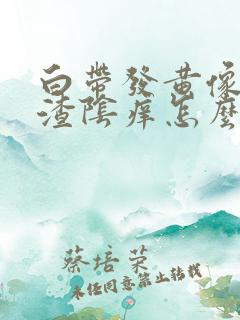 白带發黄像
渣陰痒怎麽
蔡培荣
未经同意禁止转载